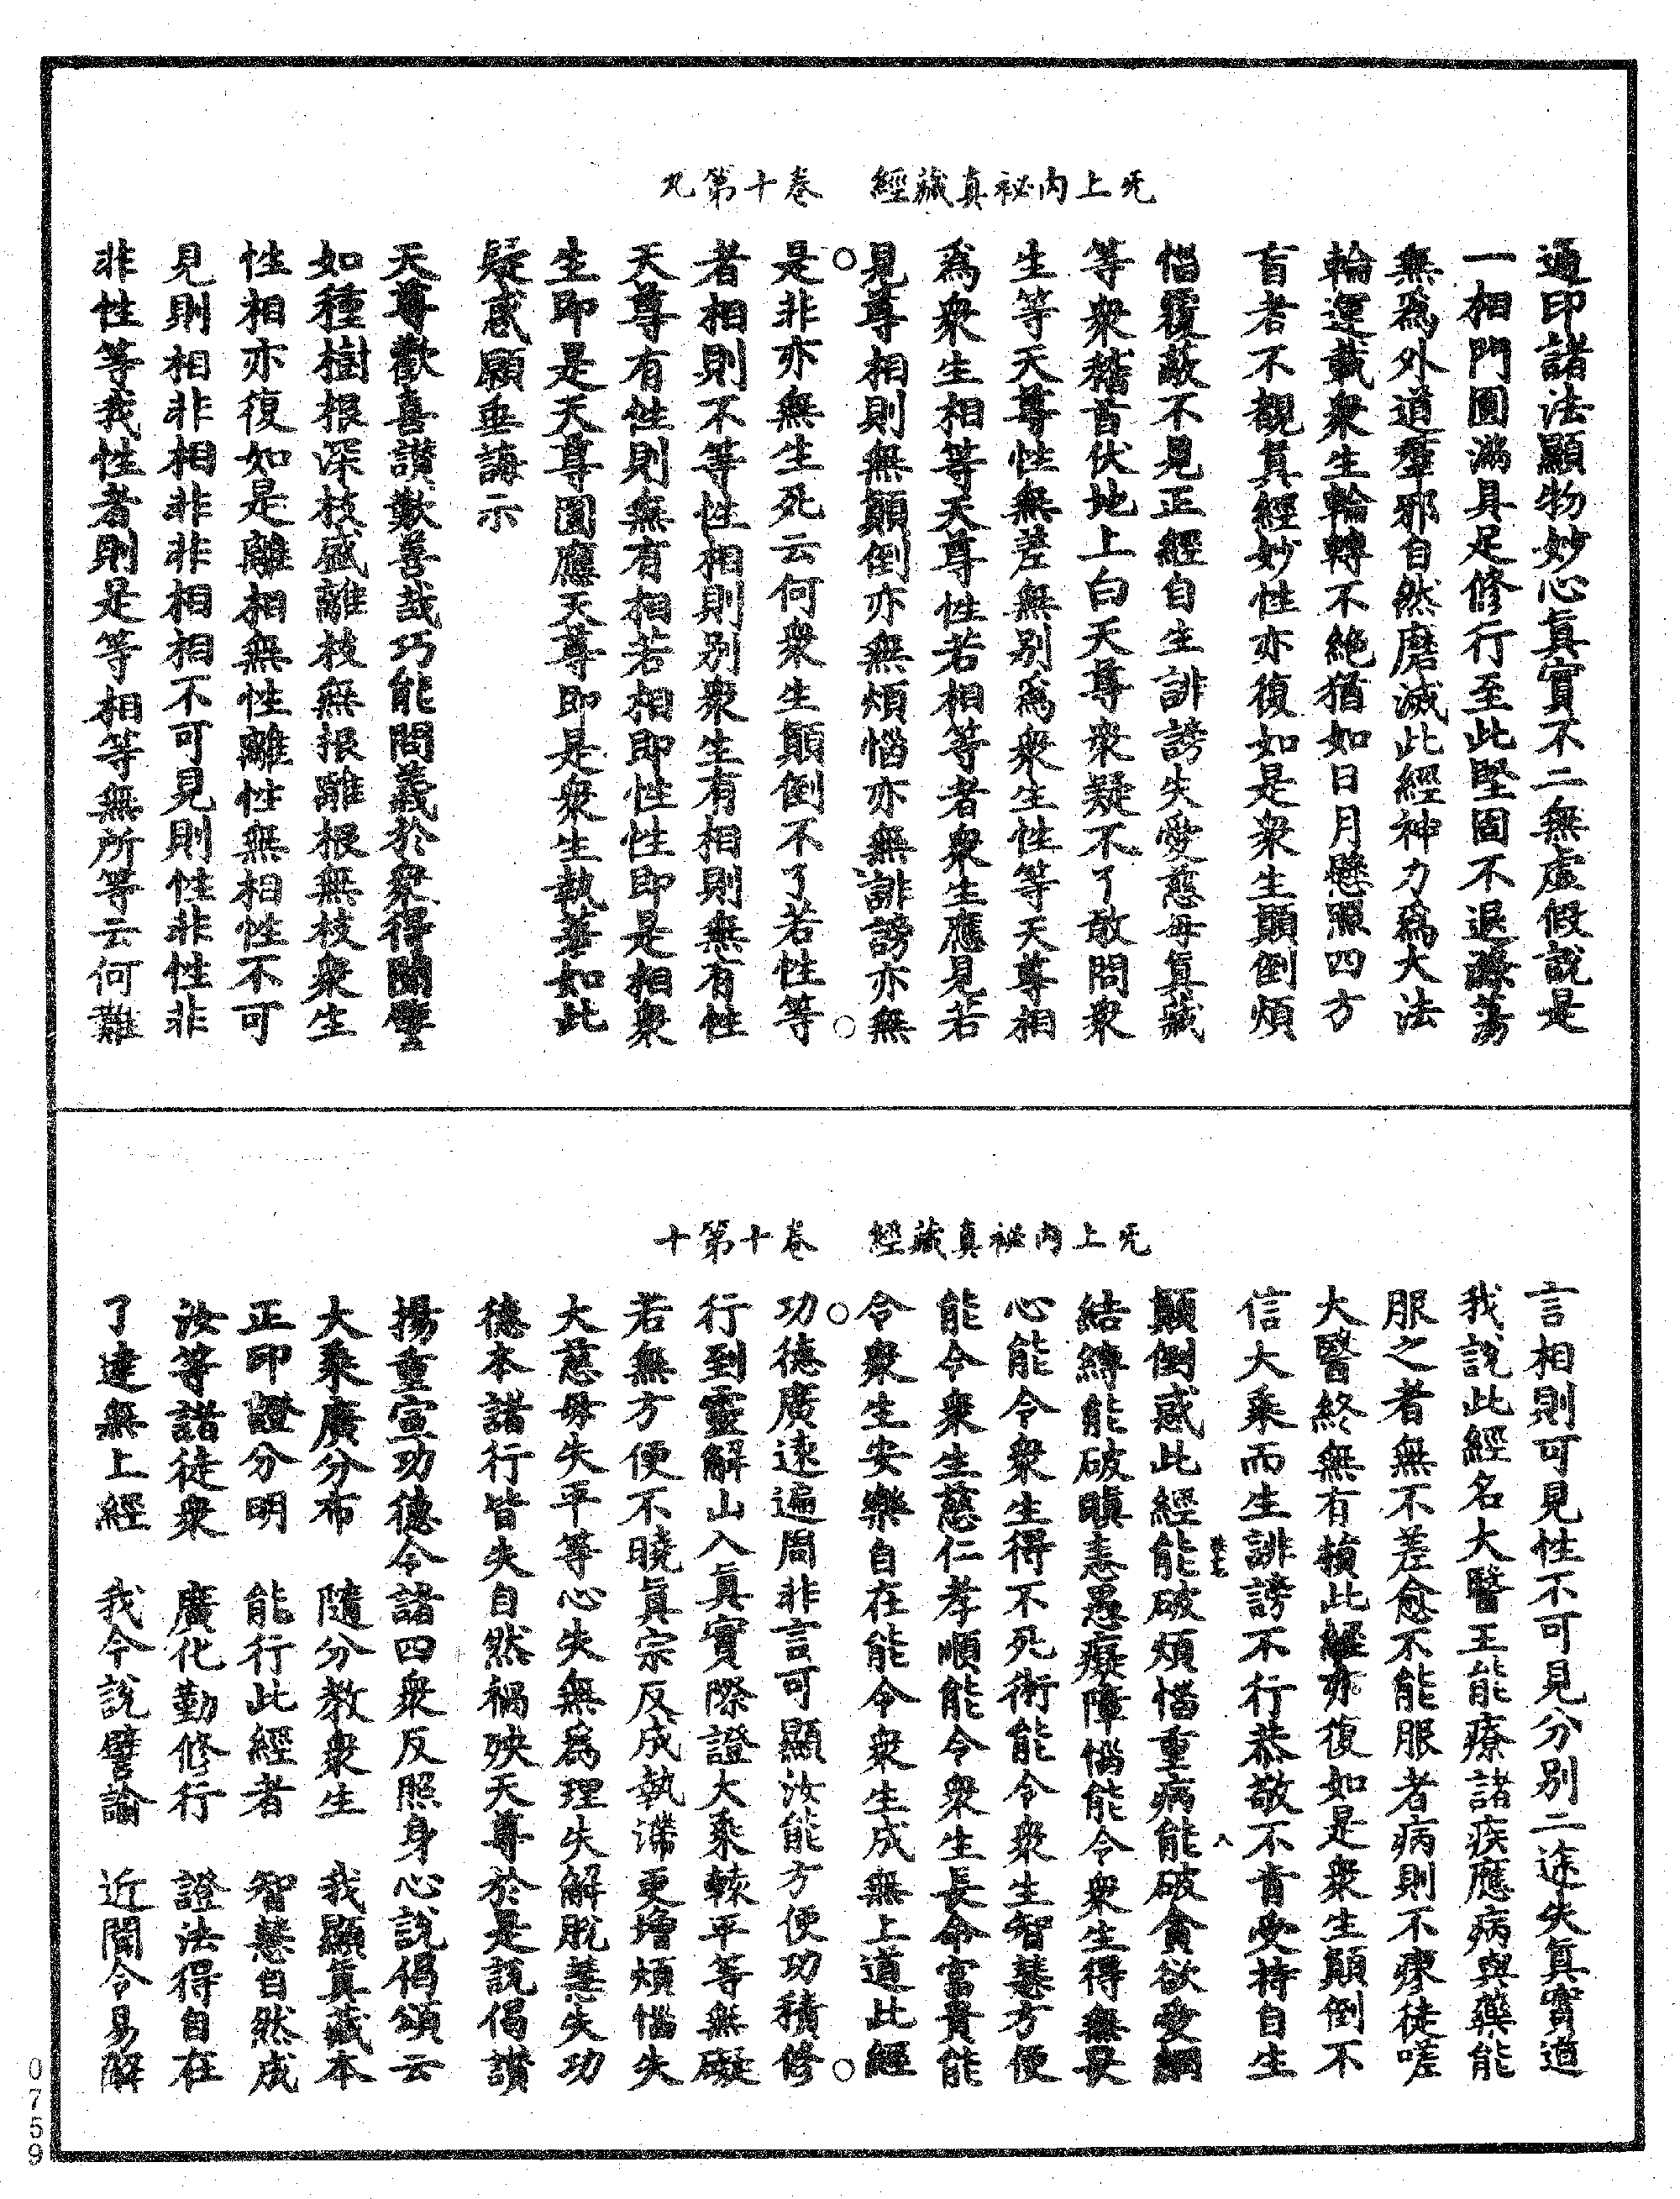 无上內祕真藏經　卷十第九
通印諸法顯物妙心真實不二無虛假說是
一相門圓滿具足修行至此堅固不退蕩
無為外道羣邪自然磨滅此經神力為大法
輪運載衆生輪轉不絕猶如日月懸照四方
盲者不覩真經妙性亦復如是衆生顛倒煩
惱覆蔽不見正經自生誹謗失愛慈母真藏
等衆稽首伏地上白天尊衆疑不了敢問衆
生等天尊性無差無別為衆生性等天尊相
為衆生相等天尊性若相等者衆生應見若
見尊相則無顛倒亦無煩惱亦無誹謗亦無
是非亦無生死云何衆生顛倒不了若性等
者相則不等性相則別衆生有相則無有性
天尊有性則無有相若相即性性即是相衆
生即是天尊圓應天尊即是衆生執華如此
疑惑願垂誨示
天尊歡喜讚歎善哉巧能問義於衆得聞譬
如種樹根深枝盛離枝無根離根無枝衆生
性相亦復如是離相無性離性無相性不可
見則相非相非非相相不可見則性非性非
非性等我性者則是等相等無所等云何難
无上內祕真藏經　卷十第十
言相則可見性不可見分別二途失真實道
我說此經名大醫王能療諸疾應病與藥能
服之者無不差愈不能服者病則不瘳徒嗟
大醫終無有損此經亦復如是衆生顛倒不
信大乘而生誹謗不行恭敬不肯受持自生
顛倒惑此經能破煩惱重病能破貪欲愛網
結縛能破瞋恚愚癡障惱能令衆生得無畏
心能令衆生得不死術能令衆生智慧方便
能令衆生慈仁孝順能令衆生長命富貴能
令衆生安樂自在能令衆生成無上道此經
功德廣遠遍周非言可顯汝能方便功積修
行到靈解山入真實際證大乘轅平等無礙
若無方便不曉真宗反成執滯更增煩惱失
大慈母失平等心失無為理失解脫慧失功
德本諸行皆失自然禍殃天尊於是說偈讚
揚重宣功德令諸四衆反照身心說偈頌云
大乘廣分布　隨分教衆生　我顯真藏本
正印證分明　能行此經者　智慧自然成
汝等諸徒衆　廣化勤修行　證法得自在
了達無上經　我今說譬諭　近聞令易解
0759